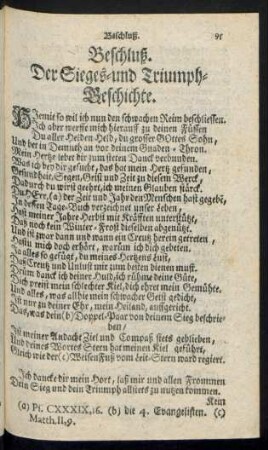 Beschluß. 91
Beschluß.
Der Sieges-und Triumph-
Geschichte.
Hiemit so wil ich nun den schwachen Reim beschliessen.
Ich aber werffe mich hierauff zu deinen Füssen
Du aller Heiden-Held, du grosser GOttes Sohn,
Und bet in Demuth an vor deinem Gnaden-Thron.
Mein Hertze ieber dir zum steten Danck verbunden.
Was ich bey dir gesucht, das hat mein Hertz gefunden,
Gesundheit, Segen, Geist und Zeit zu diesem Werck,
Dadurch du wirst geehrt, ich meinen Glauben stärck.
Du HErr, (a) der Zeit und Jahr den Menschen hast gegebē,
In dessen Tage-Buch verzeichnet unser Leben,
Hast meiner Jahre-Herbst mit Kräfften unterstützt,
Daß noch kein Winter-Frost dieselben abgenützt.
Und ist zwar dann und wann ein Creutz herein getreten,
Hastu mich doch erhört, warum ich dich gebeten.
Ja alles so gefügt, du meines Hertzens Lust,
Daß Creutz und Unlust mir zum besten dienen must.
Drüm danck ich deiner Huld, ich rühme deine Güte,
Dich preist mein schlechter Kiel, dich ehret mein Gemühte.
Und alles, was allhie mein schwacher Geist gedicht,
Ist nur zu deiner Ehr, mein Heiland, auffgericht.
Das, was dein (b) Doppel-Paar von deinem Sieg beschrie-
ben/
Ist meiner Andacht Ziel und Compaß stets geblieben,
Und deines Wortes Stern hat meinen Kiel geführt,
Gleich wie der (c) Weisen Fuß vom Leit-Stern ward regiert.
Ich dancke dir mein Hort, laß mir und allen Frommen
Dein Sieg und dein Triumph allstets zu nutzen kommen.
Kein
(a) Ps. CXXXIX,16. (b) die 4. Evangelisten. (c)
Matth. II,9.